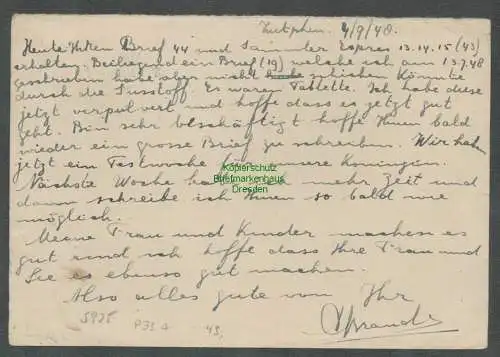 Zutphen. 4/9/48.
Heute Ihren Brief 44 und Sammler Expres 13.14.15 (43)
erhalten. Beiliegend ein Brief (19) welche ich am 13.7.48
geschrieben habe aber nicht schicken könnte
durch die Süsstoff. Es waren Tablette. Ich habe diese
jetzt verpulvert und hoffe dass es jetzt gut
geht. Bin sehr beschäftigt hoffe Ihnen bald
wieder ein grosse Brief zu schreiben. Wir haben
jetzt ein Festwoche für unsere Koningin.
Nächste Woche habe ich mehr Zeit und
dann schreibe ich Ihnen so bald wie
möglich.
Kopierschutz
Briefmarkenhaus
Dresden
Meine Frau und Kinder machen es
gut und ich hoffe dass Ihre Frau und
Sie es ebenso gut machen.
Also alles gute von Ihr
5925 P33 a 43,